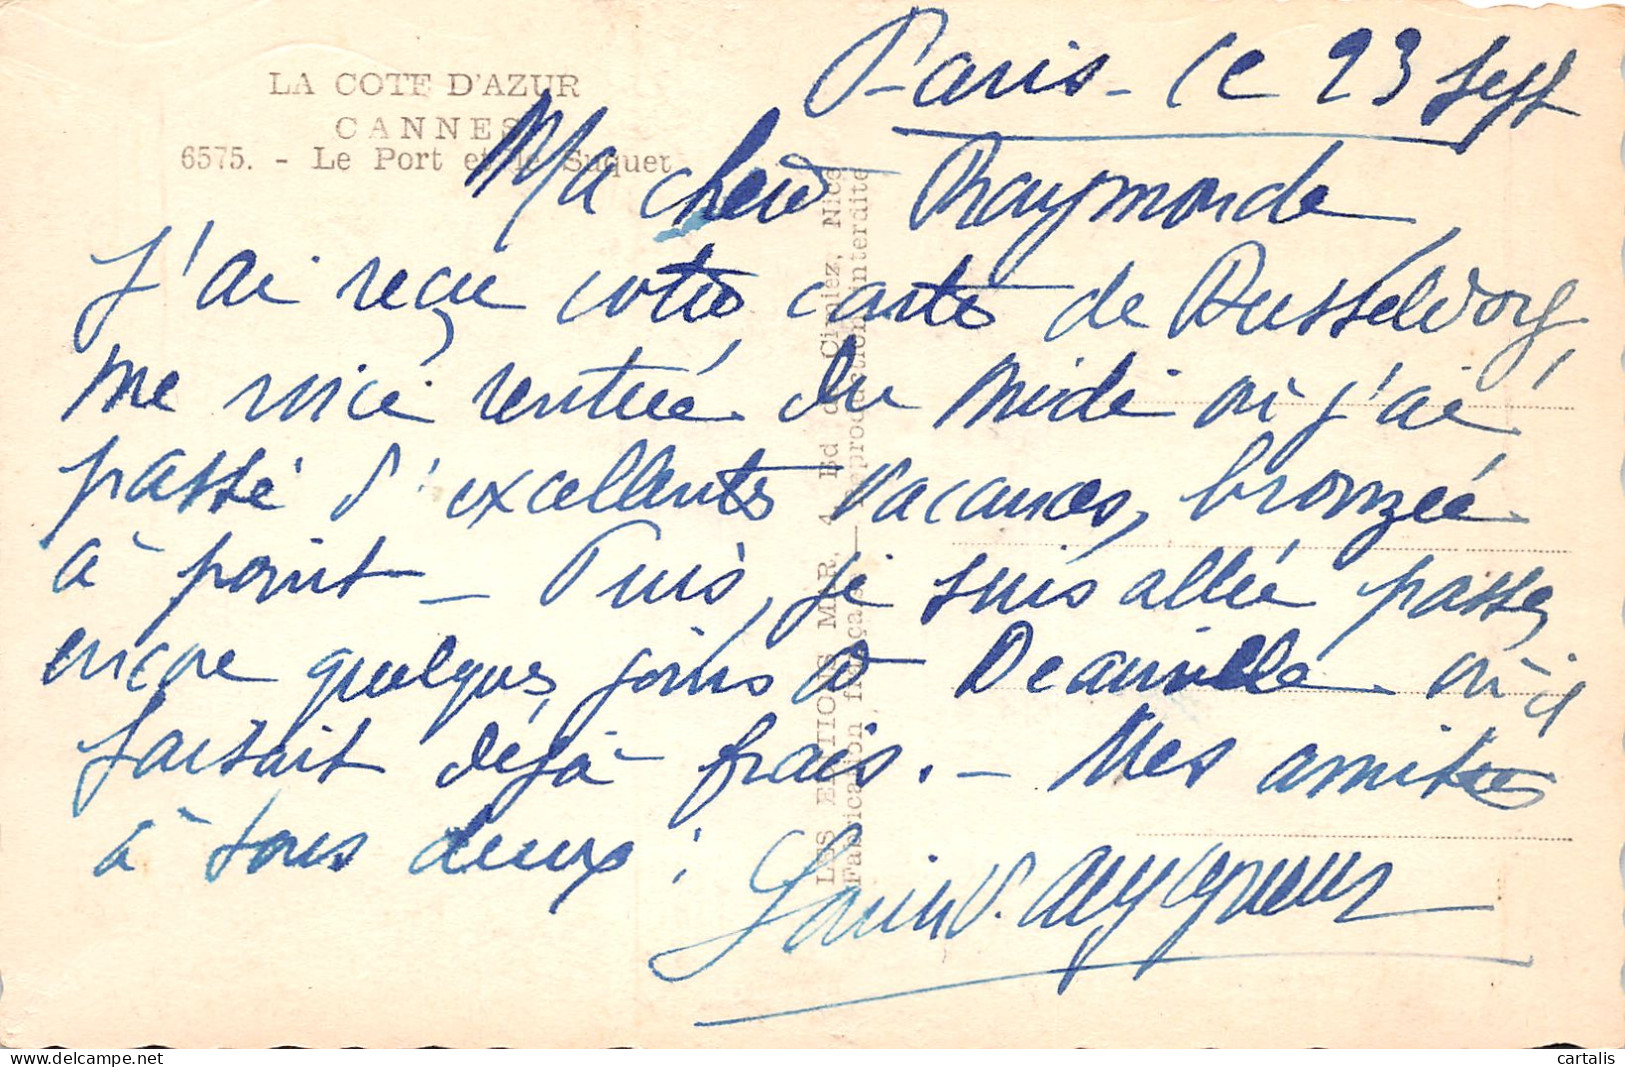 LA COTE D'AZUR
CANNES
6575. - Le Port et le Suquet
Paris - le 23 Sept
Ma chère Raymonde
J'ai reçu votre carte de Dusseldorf,
me voici rentrée du Midi où j'ai
passé d'excellentes vacances, bronzée
à point - Puis, je suis allée passer
encore quelques jours à Deauville où il
faisait déjà frais. - Mes amitiés
à tous deux :
LES EDITIONS MAR, 4, Bd de Cimiez, Nice
Fabrication française - Reproduction interdite
cartalis